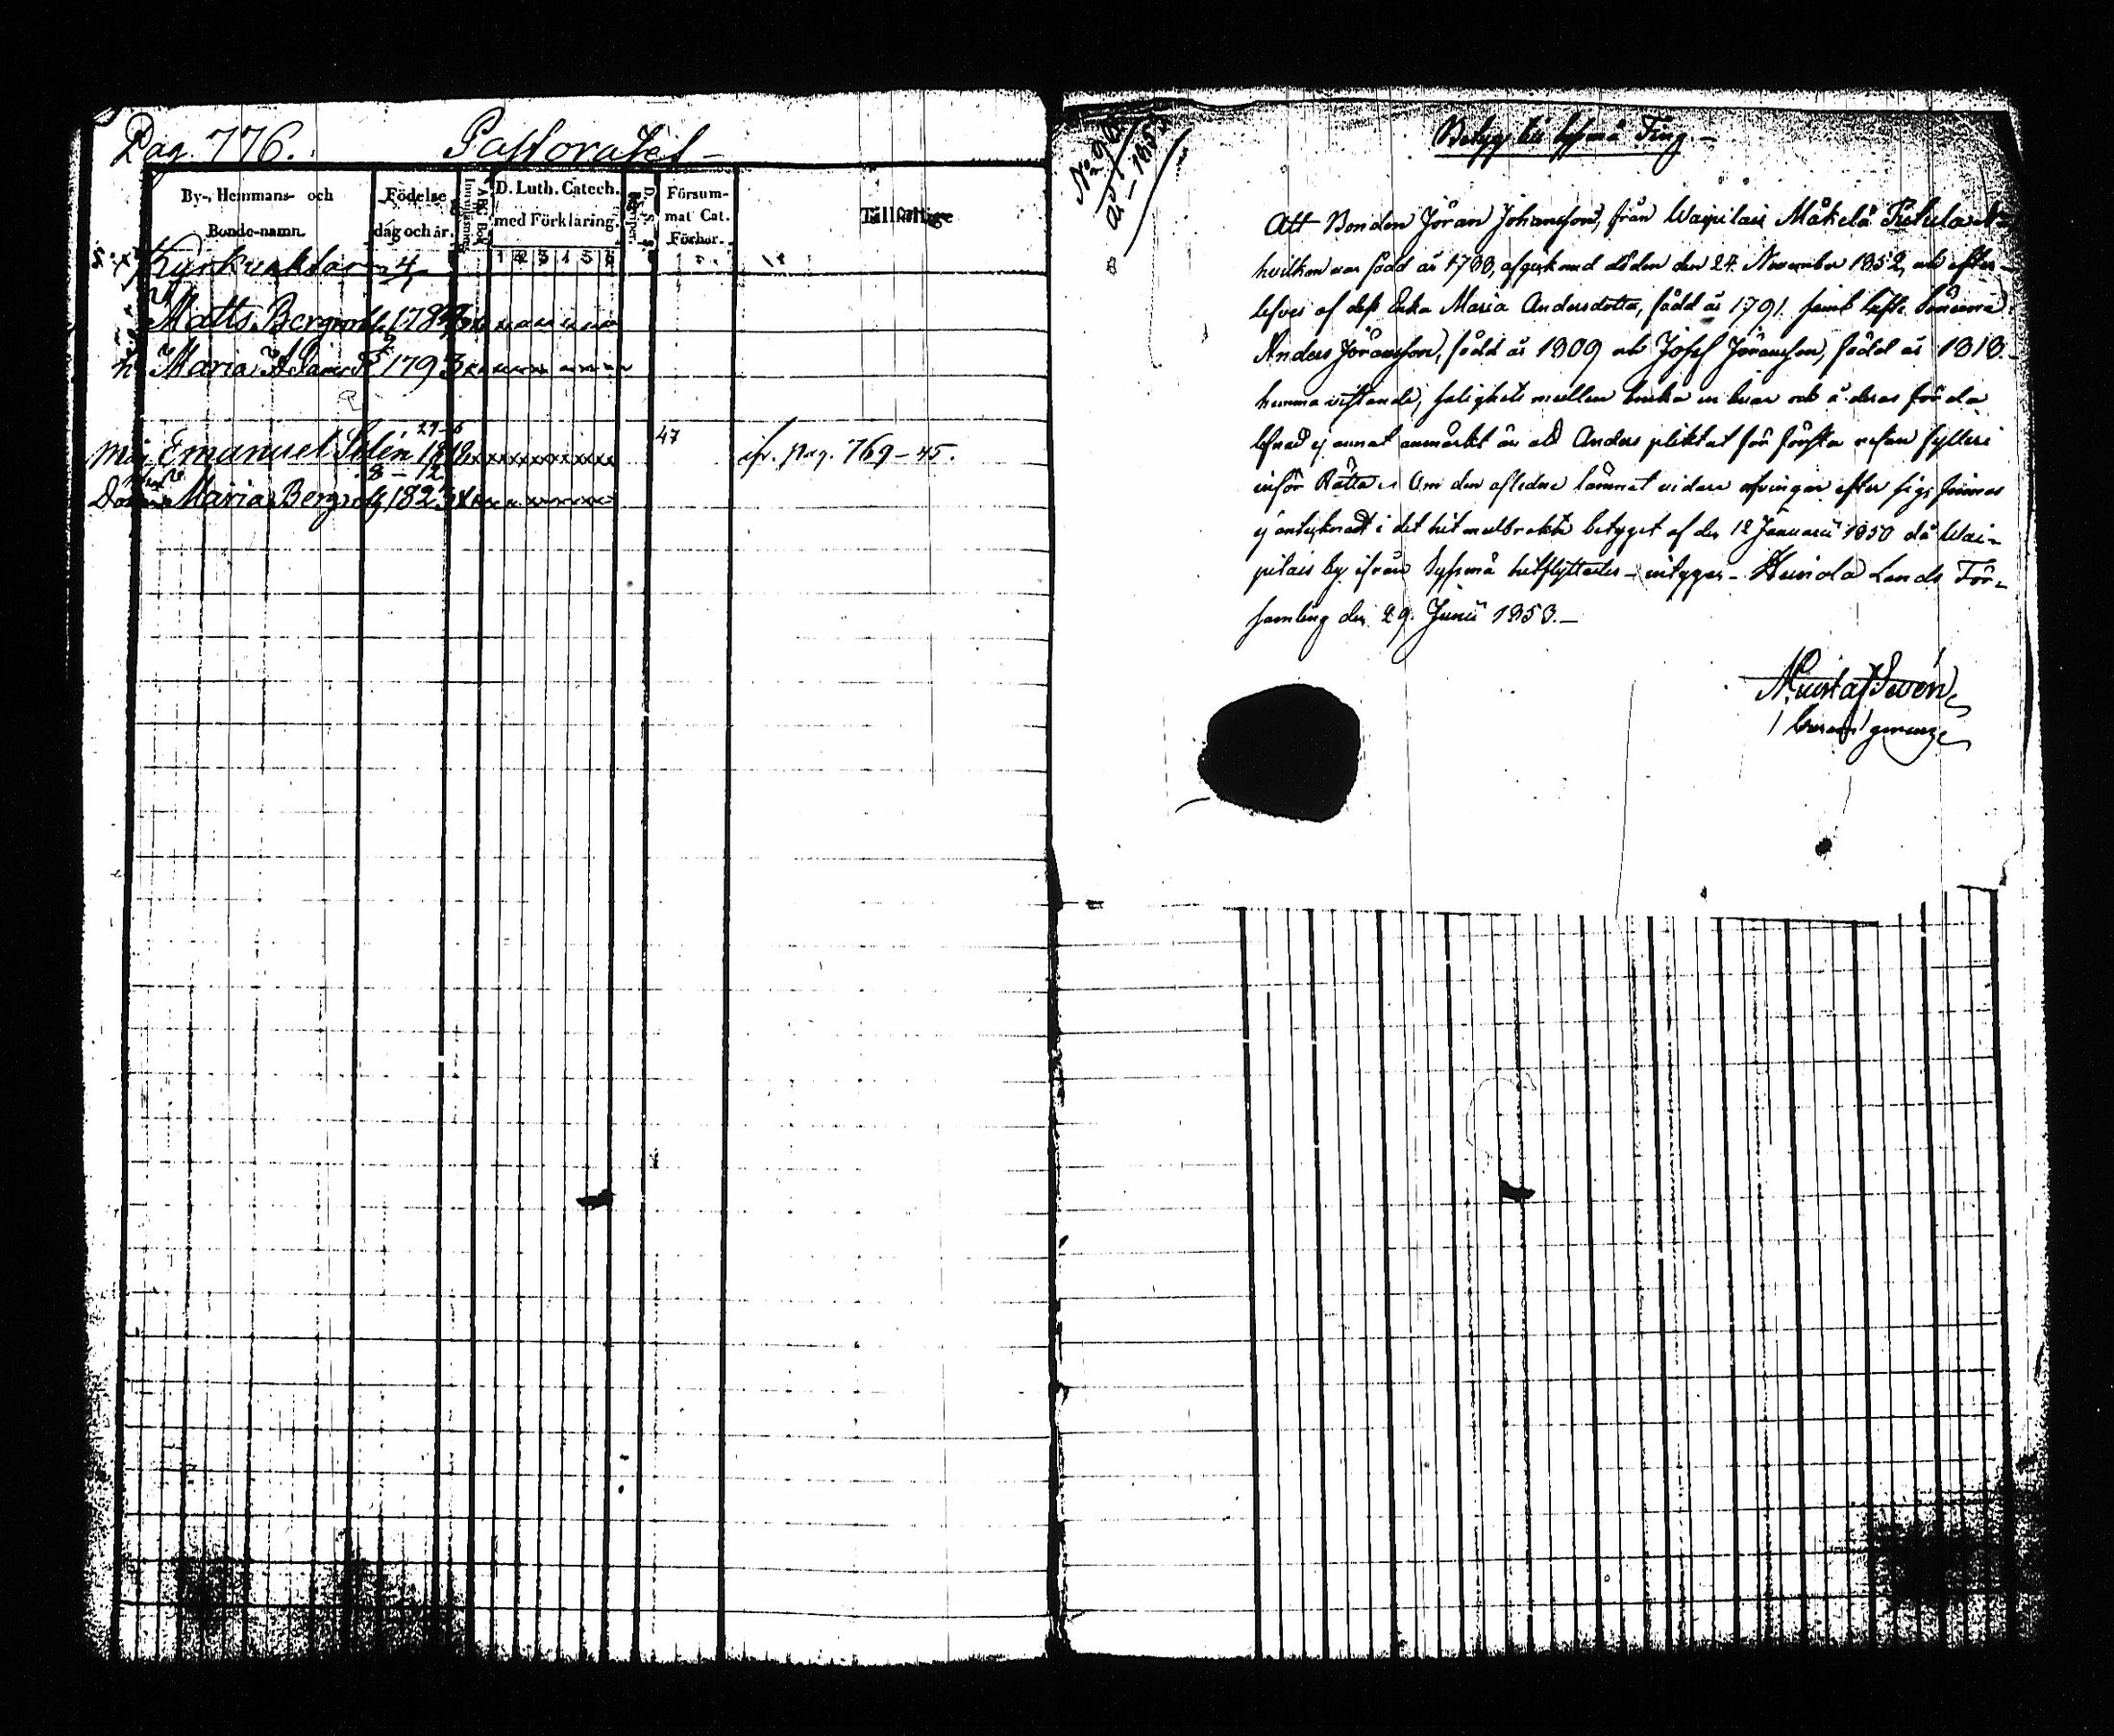 Pag. 776. Pastoratet
By-, Hemmans- och Bonde-namn.
Födelse dag och år.
Innanläsning
ABC Bok
D. Luth. Catech. med Förklaring.
1 2 3 4 5 6
D. S. S.
Försummat Cat. Förhör.
Tillfällige
Kyrkvaktar
Matts Bergroth
Maria Adamsd 1793
29-6
Måg Emanuel Silén 47 jfr. pag. 769-45.
8-12
Maria Bergroth 1823
Betyg till Sysmä Ting.-
Att Bonden Jöran Johansson, från Waipilais Mäkelä
hvilken var född år 1788, afgick med döden den 24. November 1852, och efter-
lefves af dess Enka Maria Andersdotter, född år 1791. samt Sönerna
Anders Jöransson, född år 1809 och Josef Jöransson, född år 1818.
hemma vistande, salighets medlen bruka och å deras förda
lefnad ej annat anmärkt än att Anders pliktat för första resan fylleri
inför Rätta. Om den aflidne lämnat vidare arfvingar efter sig, finnes
ej antecknadt i det hit medbrakte betyget af den 12 Januarii 1850 då Wai-
pilais by ifrån Sysmä hitflyttades - intygar - Heinola Lands För-
samling den 29. Junii 1853.-